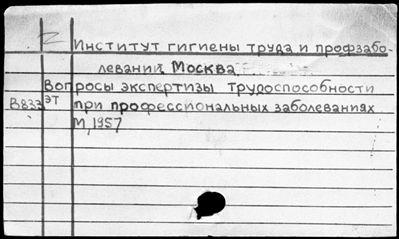 Институт гигиены труда и профзабо-
леваний, Москва
Вопросы экспертизы трудоспособности
В833 ЭТ при профессиональных заболеваниях
М, 1957